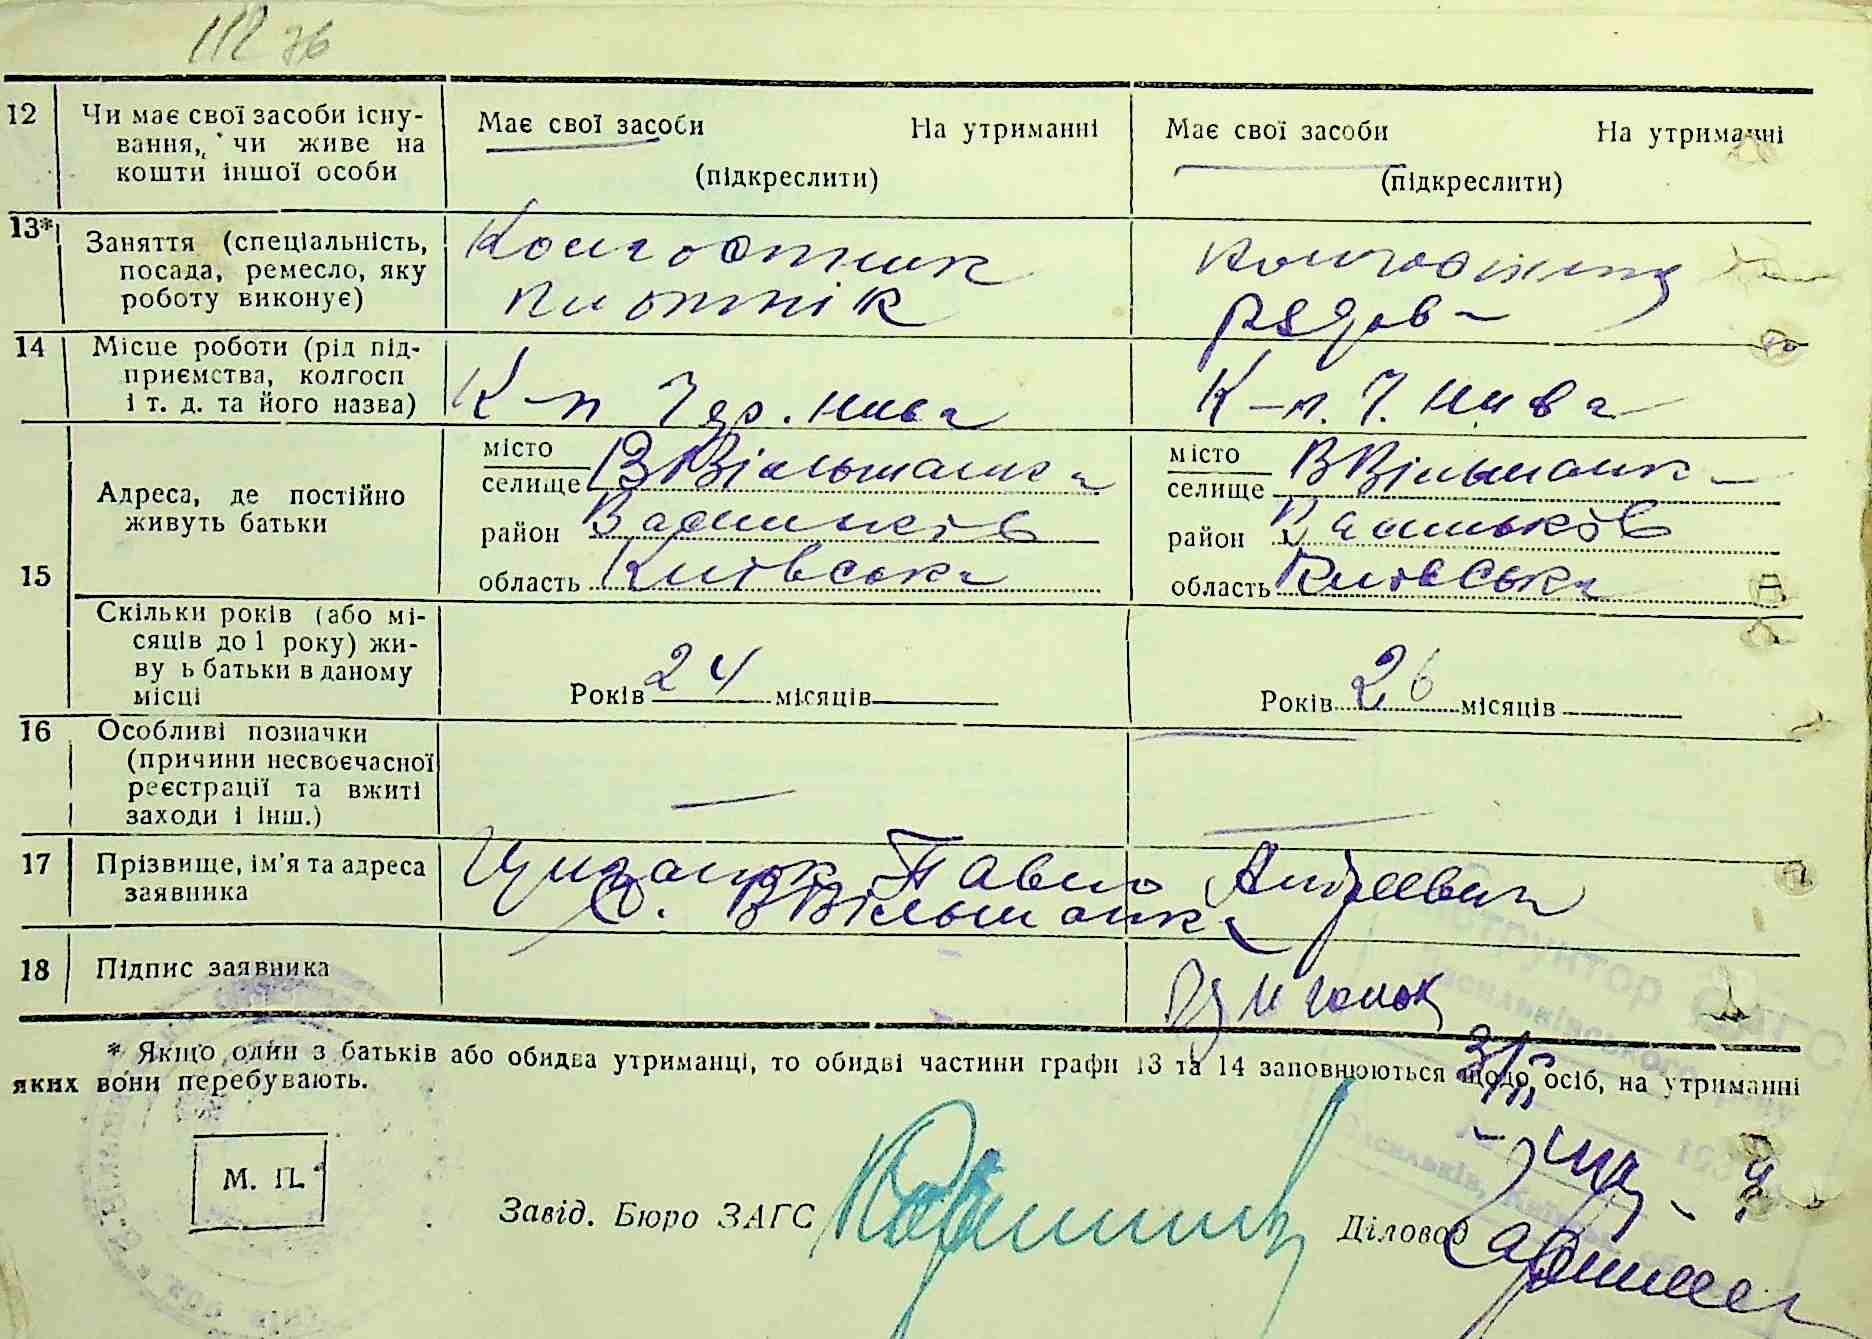 112 зв
12 Чи має свої засоби існу- Має свої засоби На утриманні Має свої засоби На утриманні
вання, чи живе на
кошти іншої особи (підкреслити) (підкреслити)
13* Заняття (спеціальність, Колгостник колгосниця
посада, ремесло, яку
роботу виконує) плотнік рядов-
14 Місце роботи (рід під-
приємства, колгосп
і т. д. та його назва) К-п Чер. нива К-п. Ч. Нива
місто В Вільшанка місто В Вільшанк-
селище селище
Адреса, де постійно
живуть батьки район Васильків район Васильків
15 область Київська область Київська
Скільки років (або мі-
сяців до 1 року) жи-
ву ь батьки в даному
місці Років 24 місяців Років 26 місяців
16 Особливі позначки
(причини несвоєчасної
реєстрації та вжиті
заходи і інш.) —
17 Прізвище, ім'я та адреса Циганок Павло Андреевич
заявника с. ВВільшанка
18 Підпис заявника Циганок
* Якщо один з батьків або обидва утриманці, то обидві частини графи 13 та 14 заповнюються щодо осіб, на утриманні
яких вони перебувають.
М. П.
Завід. Бюро ЗАГС Діловод